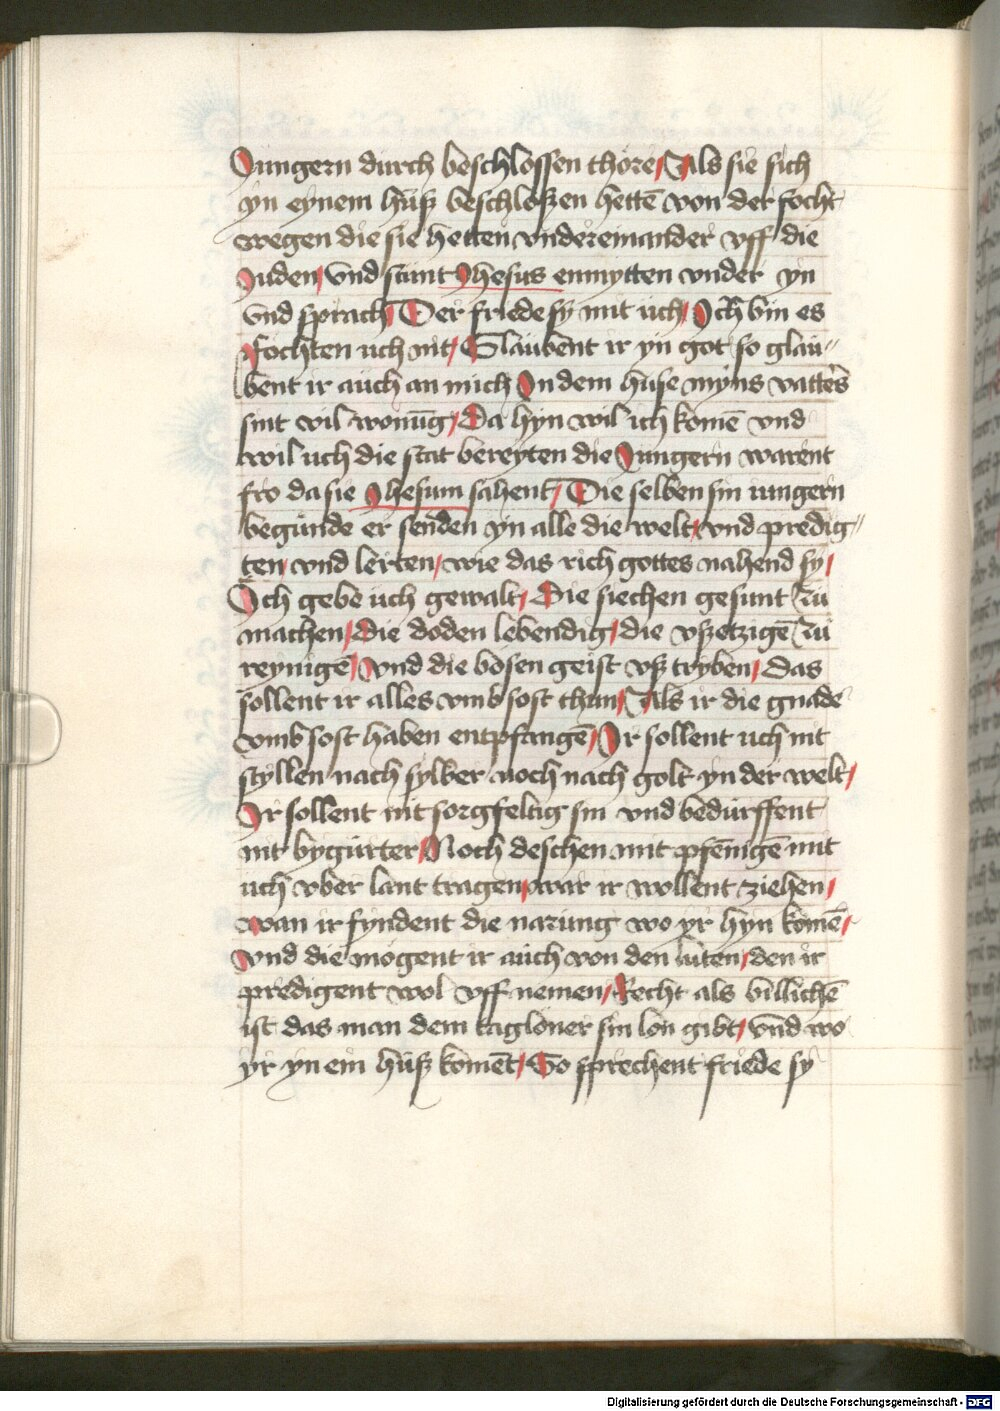 Jungern durch beschlossen thore / Als sie sich
yn eynem huß beschloßen hettē von der focht
wegen die sie hetten vndereinander vff die
Juden / vnd stunt Jhesus enmytten vnder yn
vnd sprach / Der friede sy mit uch / Ich bin es
fochten uch nit / Glaubent ir yn got so glau//
bent ir auch an mich In dem huse myns vatters
sint vil wonūg / Da hyn wil ich komē vnd
wil uch die stat bereyten die Jungern warent
fro da sie Jhesum sahent / Die selben sin iungern
begunde er senden yn alle die welt / vnd predig//
ten / vnd lerten / wie das rich gottes nahend sy /
Ich gebe uch gewalt / Die siechen gesunt zu
machen / die doden lebendig / die vßetzigē zu
reynigē / vnd die bosen geist vß tryben / Das
sollent ir alles vmb sost thun / Als ir die gnade
vmb sost haben entpfangē / Ir sollent uch nit
styllen nach sylber noch nach golt yn der welt /
Ir sollent nit sorgfeltig sin vnd bedurffent
nit bygurter / Noch deschen mit pfēnigē mit
uch vber lant tragen / war ir wollent ziehen /
wan ir fyndent die narung wo yr hyn komē /
vnd die mogent ir auch von den luten / den ir
predigent wol vff nemen / Recht als billichē
ist das man dem tagloner sin lon gibt / vnd wo
yr yn ein huß komēt / So sprechent friede sy
Digitalisierung gefördert durch die Deutsche Forschungsgemeinschaft - DFG